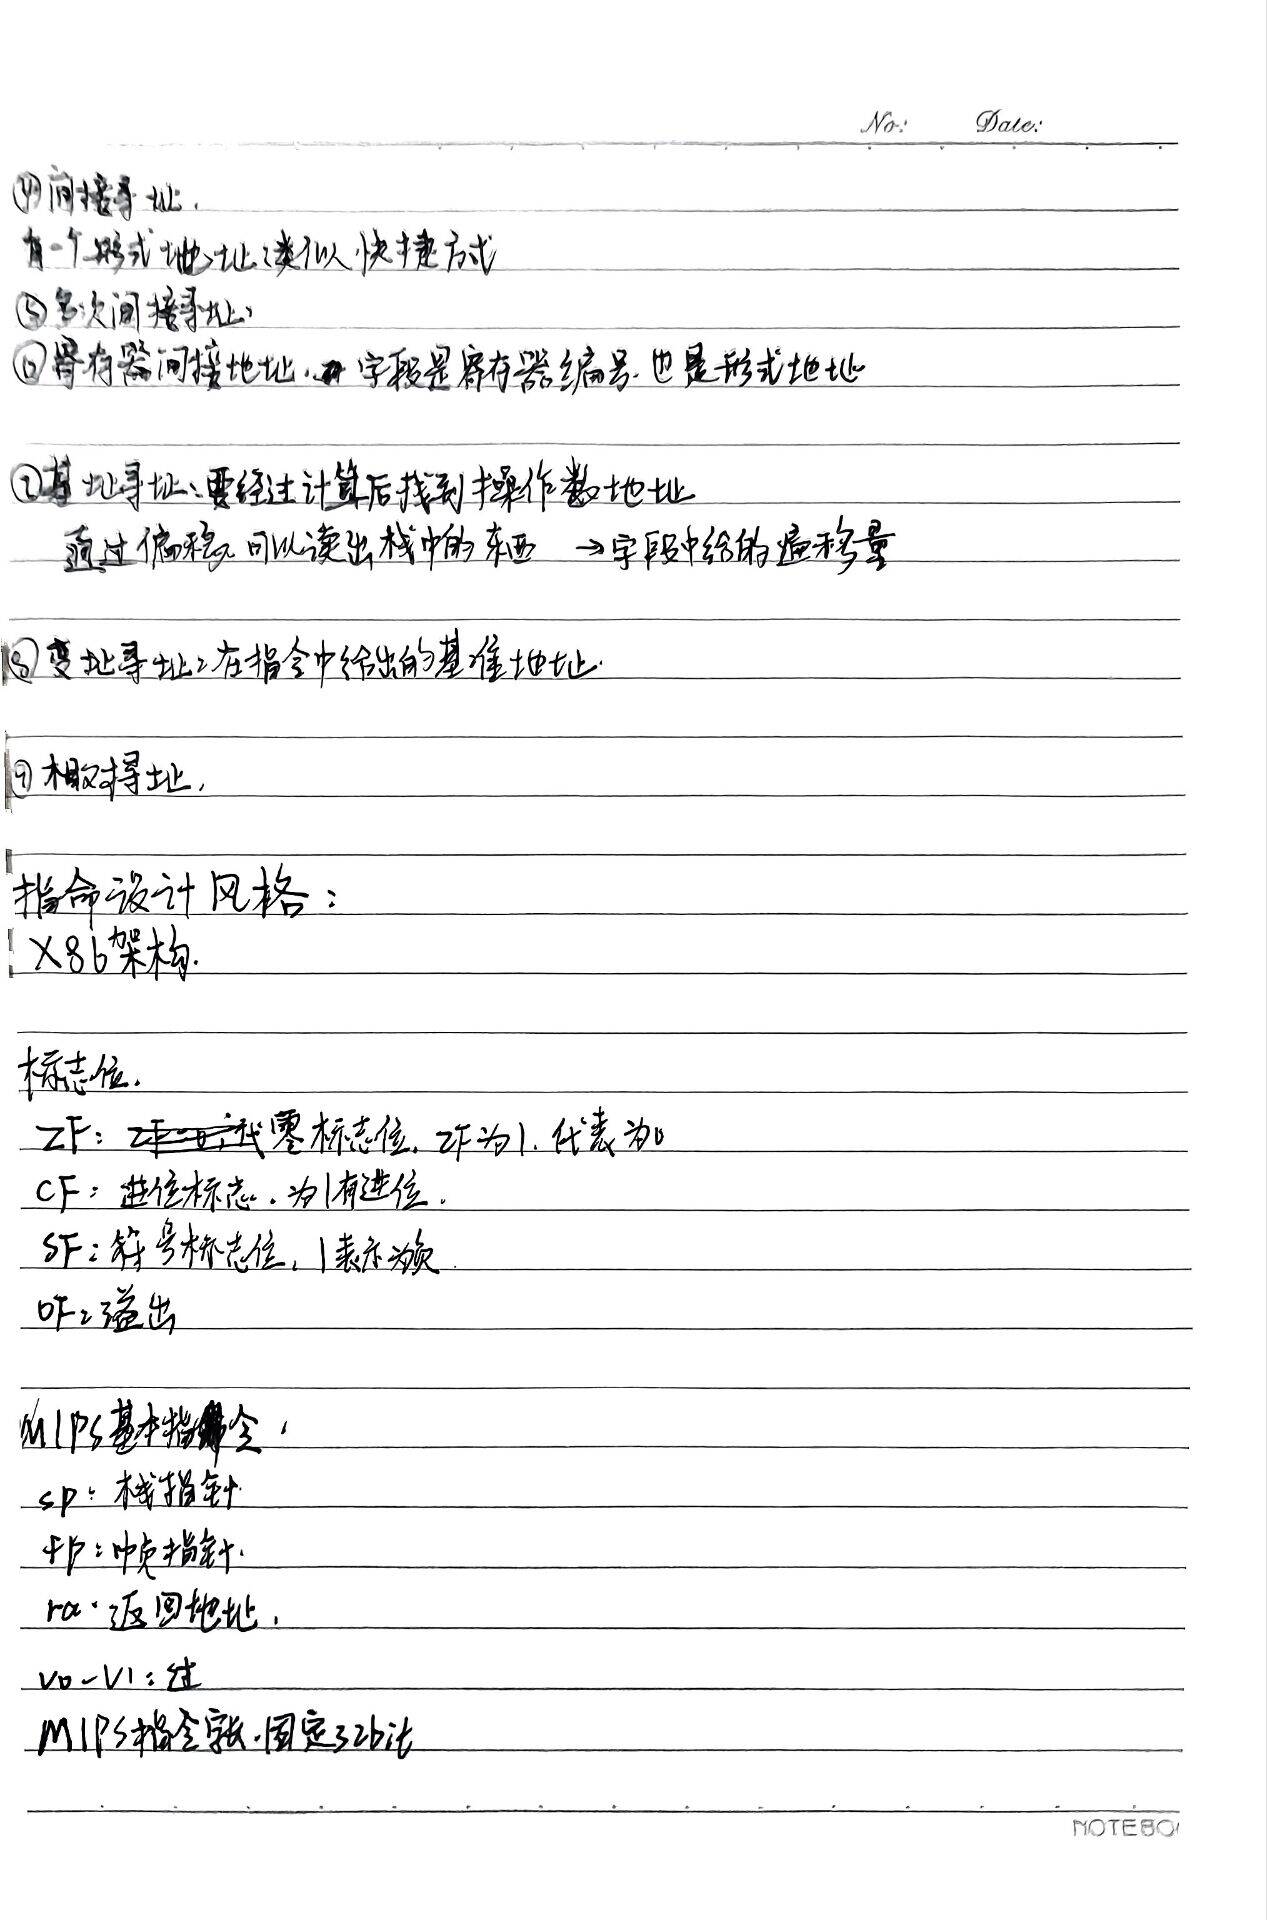 No: Date:
④间接寻址.
有一个形式地址:类似快捷方式
⑤多次间接寻址:
⑥寄存器间接地址. 字段是寄存器编号.也是形式地址
⑦基址寻址:要经过计算后找到操作数地址
通过偏移 可以读出栈中的东西 →字段中给的偏移量
⑧变址寻址:在指令中给出的基准地址.
⑨相对寻址.
指命设计风格:
X86架构.
标志位.
ZF: 零标志位. ZF为1.代表为0
CF: 进位标志.为1有进位.
SF:符号标志位,1表示为负.
OF:溢出
MIPS基本指令.
sp:栈指针.
fp:帧指针.
ra.返回地址.
v0-v1:过
MIPS指令字长.固定32bit
NOTEBO